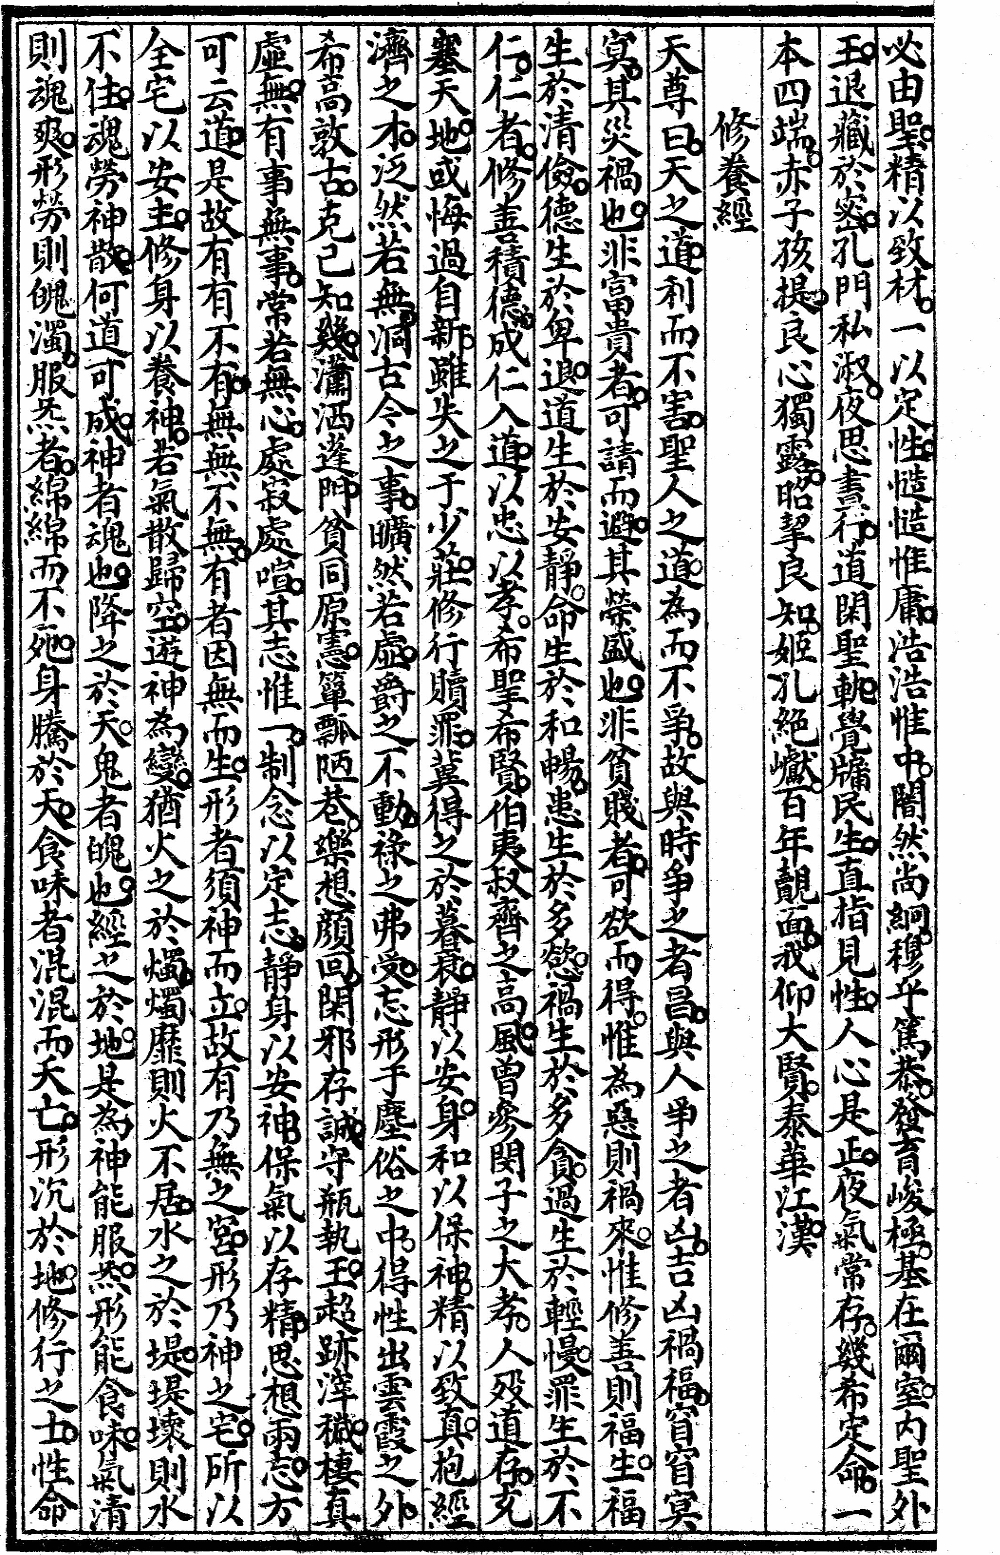 必由聖精以致材一以定性慥慥惟庸浩浩惟中闇然尚絅穆乎篤恭發育峻極基在爾室內聖外
王退藏於密孔門私淑夜思晝行道閑聖軌覺牖民生直指見性人心是正夜氣常存幾希定命一
本四端赤子孩提良心獨露昭挈良知姬孔絕巘百年覿面我仰大賢泰華江漢
修養經
天尊曰天之道利而不害聖人之道為而不爭故與時爭之者昌與人爭之者凶吉凶禍福窅窅冥
冥其災禍也非富貴者可請而避其榮盛也非貧賤者可欲而得惟為惡則禍來惟修善則福生福
生於清儉德生於卑退道生於安靜命生於和暢患生於多慾禍生於多貪過生於輕慢罪生於不
仁仁者修善積德成仁入道以忠以孝希聖希賢伯夷叔齊之高風曾參閔子之大孝人歿道存充
塞天地或悔過自新雖失之于少莊修行贖罪冀得之於暮衰靜以安身和以保神精以致真抱經
濟之才泛然若無洞古今之事曠然若虛爵之不動祿之弗受忘形于塵俗之中得性出雲霞之外
希高敦古克己知幾瀟洒蓬門貧同原憲簞瓢陋巷樂想顏回閑邪存誠守瓶執玉超跡滓穢棲真
虛無有事無事常若無心處寂處喧其志惟一制念以定志靜身以安神保氣以存精思想兩忘方
可云道是故有有不有無無不無有者因無而生形者須神而立故有乃無之宮形乃神之宅所以
全宅以安主修身以養神若氣散歸空遊神為變猶火之於燭燭靡則火不居水之於堤堤壞則水
不住魂勞神散何道可成神者魂也降之於天鬼者魄也經之於地是為神能服炁形能食味氣清
則魂爽形勞則魄濁服炁者綿綿而不死身騰於天食味者混混而夭亡形沉於地修行之士性命